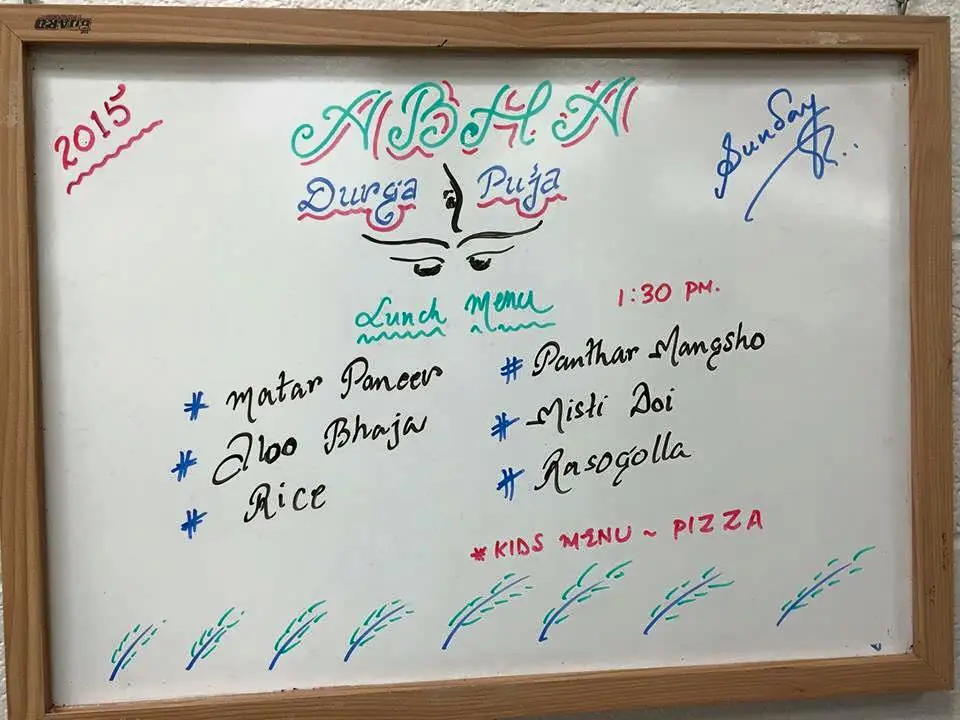 2015
ABHA
Sunday
Durga Puja
Lunch Menu
1:30 PM.
# Matar Paneer
# Aloo Bhaja
# Rice
# Panthar Mangsho
# Misti Doi
# Rasogolla
* KIDS MENU ~ PIZZA